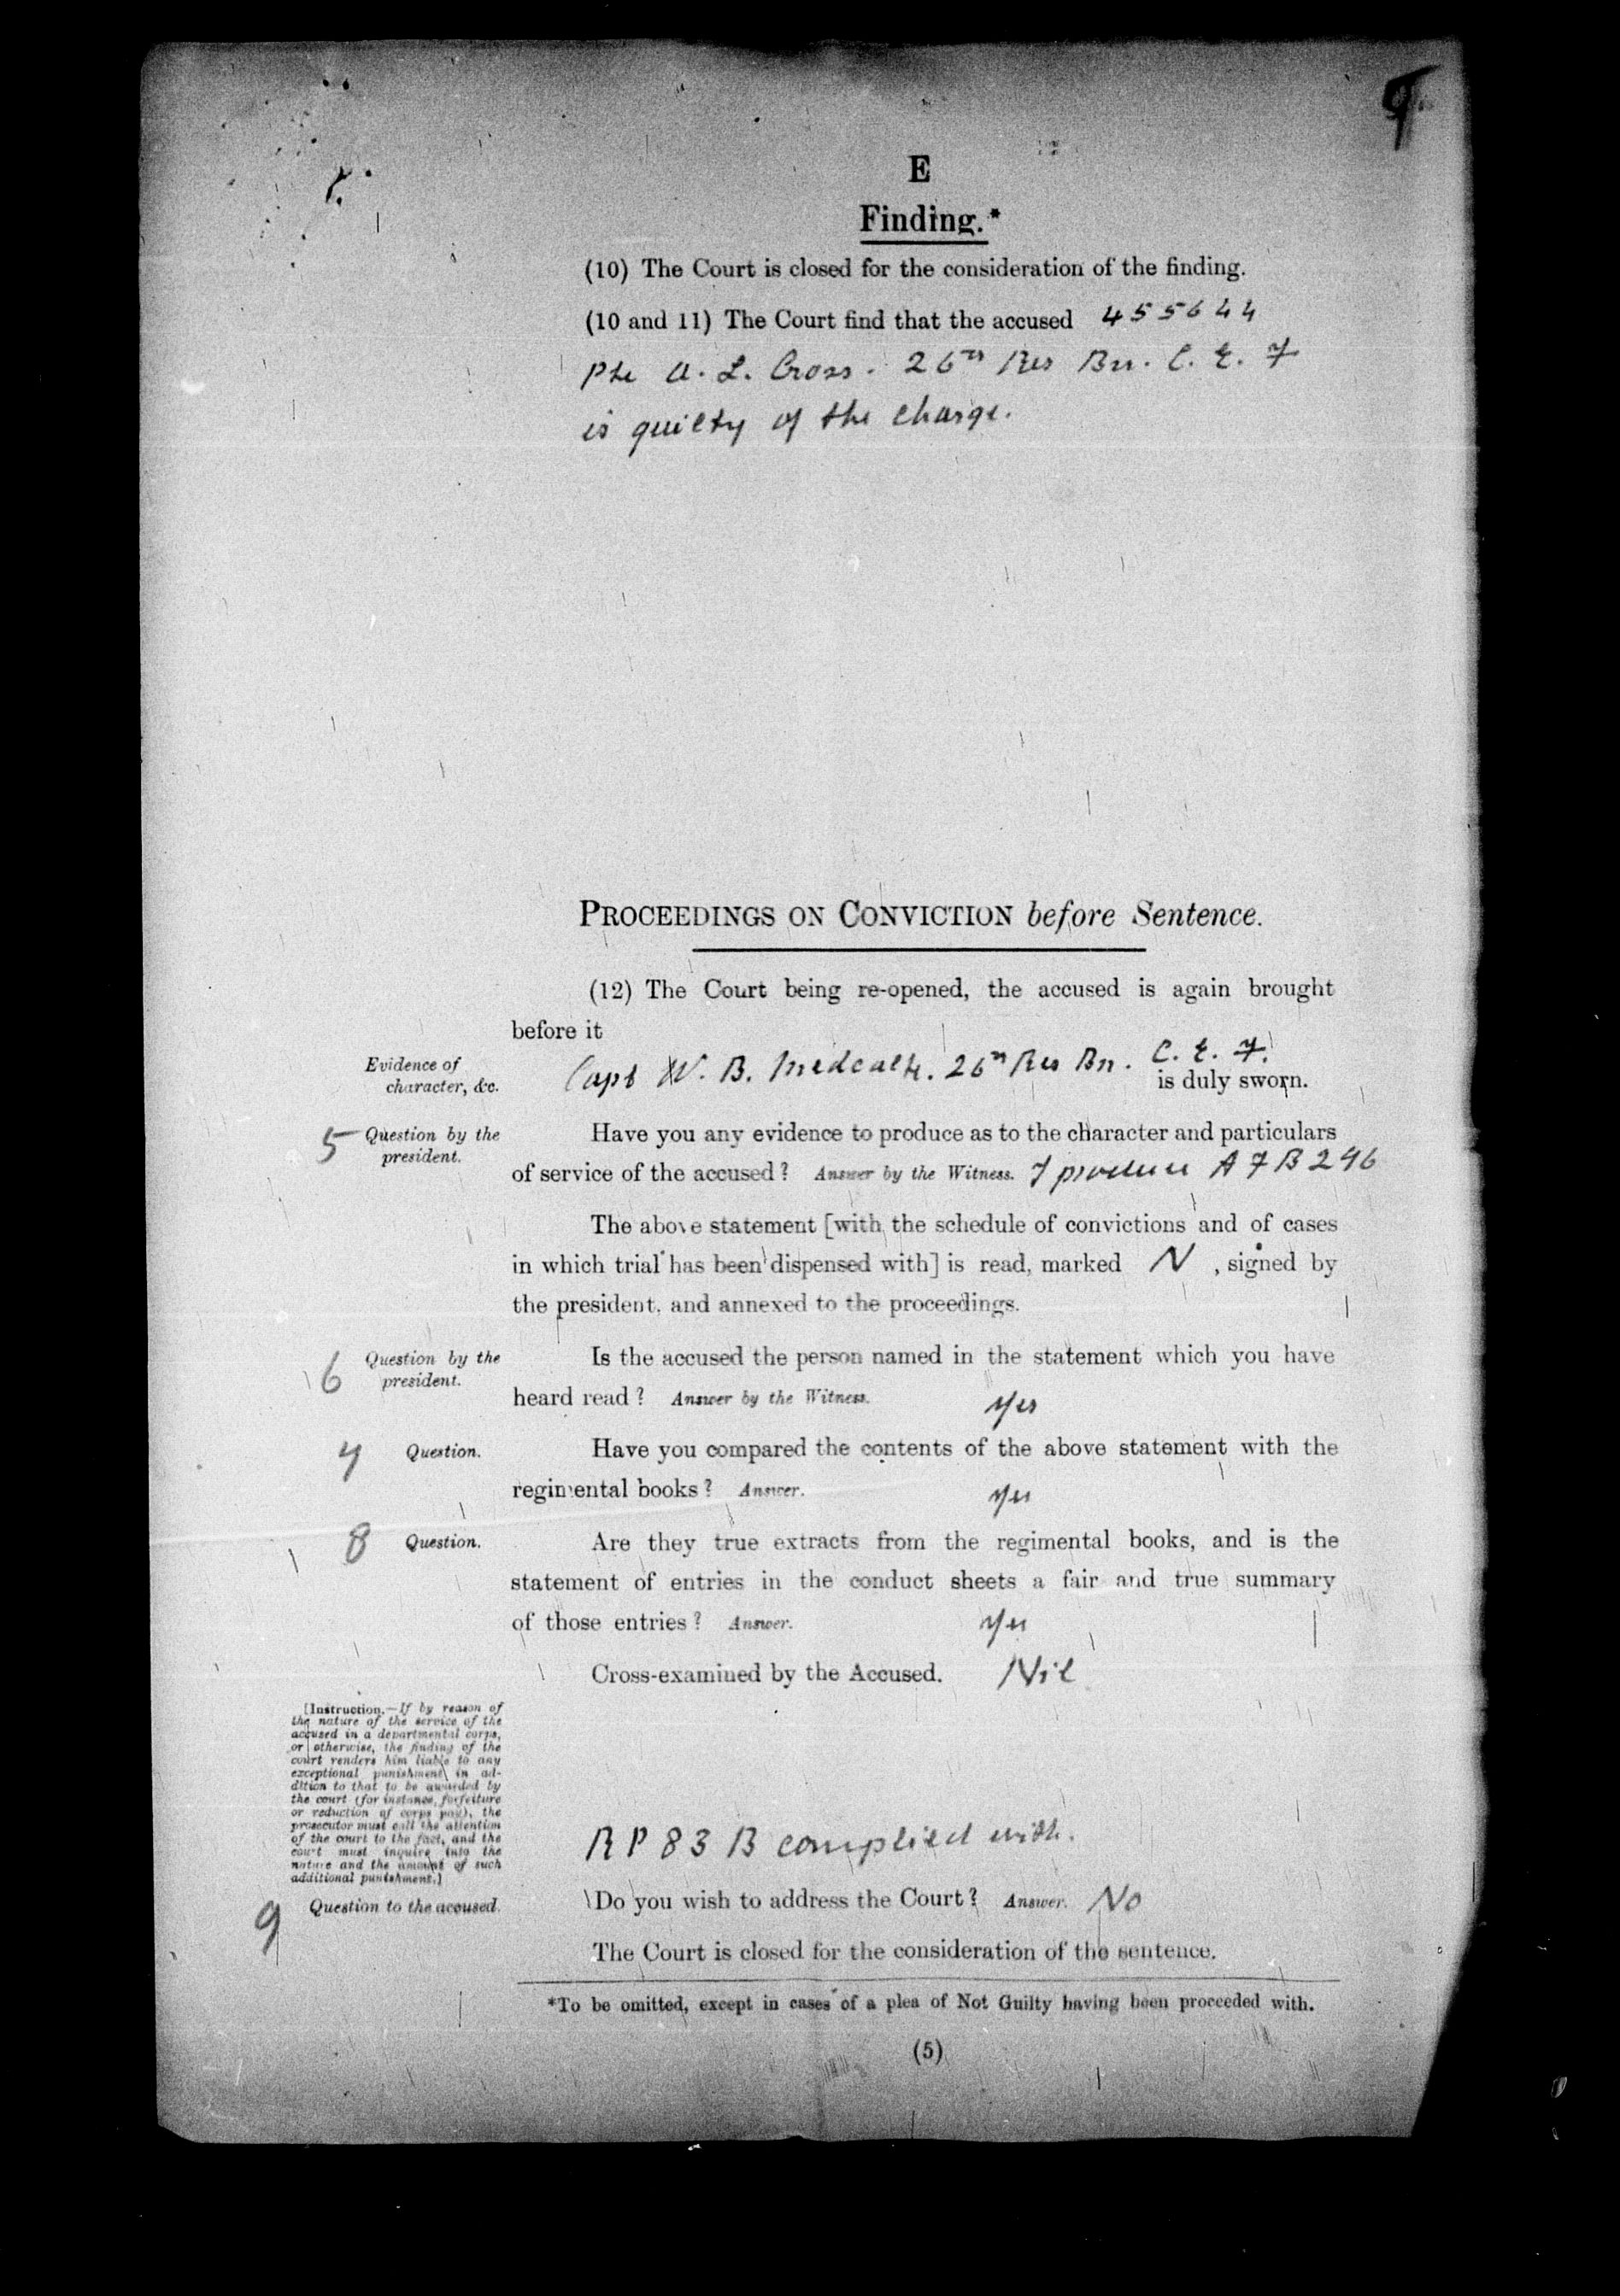 9
E
Finding.*
(10) The Court is closed for the consideration of the finding.
(10 and 11) The Court find that the accused 455644
Pte A. L. Cross. 26th Res Bn. C. E. F
is guilty of the charge.
PROCEEDINGS ON CONVICTION before Sentence.
(12) The Court being re-opened, the accused is again brought
before it
Evidence of
character, &c.
Capt W. B. Medcalfe. 26th Res Bn. C. E. F.
is duly sworn.
5 Question by the
president.
Have you any evidence to produce as to the character and particulars
of service of the accused? Answer by the Witness. I produce A F B 296
The above statement [with the schedule of convictions and of cases
in which trial has been dispensed with] is read, marked N , signed by
the president, and annexed to the proceedings.
6 Question by the
president.
Is the accused the person named in the statement which you have
heard read? Answer by the Witness. Yes
7 Question.
Have you compared the contents of the above statement with the
regimental books? Answer. Yes
8 Question.
Are they true extracts from the regimental books, and is the
statement of entries in the conduct sheets a fair and true summary
of those entries? Answer. Yes
Cross-examined by the Accused. Nil
[Instruction.—If by reason of
the nature of the service of the
accused in a departmental corps,
or otherwise, the finding of the
court renders him liable to any
exceptional punishment in ad-
dition to that to be awarded by
the court (for instance, forfeiture
or reduction of corps pay), the
prosecutor must call the attention
of the court to the fact, and the
court must inquire into the
nature and the amount of such
additional punishment.]
R P 83 B complied with.
9 Question to the accused.
Do you wish to address the Court? Answer. No
The Court is closed for the consideration of the sentence.
*To be omitted, except in cases of a plea of Not Guilty having been proceeded with.
(5)